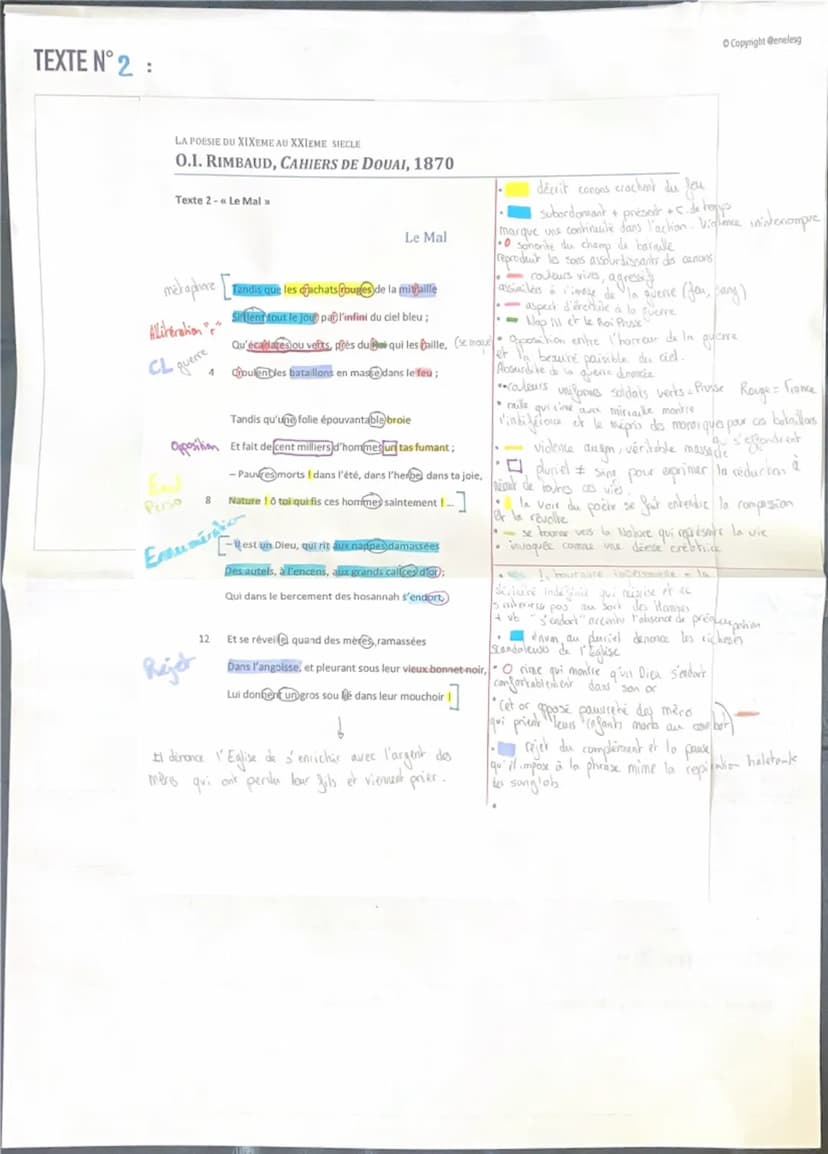 © Copyright @enelesg
TEXTE N° 2 :
LA POESIE DU XIXEME AU XXIEME SIECLE
O.I. RIMBAUD, CAHIERS DE DOUAI, 1870
Texte 2 - « Le Mal »
Le Mal
métaphore
Tandis que les crachats rouges de la mitraille
Allitération "r"
Sifflent tout le jour par l'infini du ciel bleu ;
Qu'écarlates ou verts, près du Roi qui les raille, (se moque)
CL guerre
4 Croulent les bataillons en masse dans le feu ;
Tandis qu'une folie épouvantable broie
Opposition
Et fait de cent milliers d'hommes un tas fumant ;
– Pauvres morts ! dans l'été, dans l'herbe, dans ta joie,
Perso
8 Nature ! ô toi qui fis ces hommes saintement ! ...
Ennumération
– Il est un Dieu, qui rit aux nappes damassées
Des autels, à l'encens, aux grands calices d'or ;
Qui dans le bercement des hosannah s'endort,
12 Et se réveille, quand des mères, ramassées
Rejet
Dans l'angoisse, et pleurant sous leur vieux bonnet noir,
Lui donnent un gros sou lié dans leur mouchoir !
Il dénonce l'Eglise de s'enrichir avec l'argent des
mères qui ont perdu leur fils et viennent prier.
décrit canons crachant du feu
subordonnant + présent + C. de temps
marque une continuité dans l'action. Violence ininterompue
sonorité du champ de bataille
reproduit les sons assourdissants des canons
couleurs vives, agressifs
assimilées à l'image de la guerre (feu, sang)
aspect d'éternité à la guerre
Nap III et le Roi Prusse
opposition entre l'horreur de la guerre
et la beauté paisible du ciel.
Absurdité de la guerre dénoncée
couleurs uniformes soldats verts = Prusse Rouge = France
raille qui rime avec mitraille montre
l'indifférence et le mépris des monarques pour ces bataillons
qui s'effondrent
violence augm, véritable massacre
pluriel ≠ sing pour exprimer la réduction à
néant de toutes ces vies.
la voix du poète se fait entendre la compassion
et la révolte
se tourne vers la Nature qui représente la vie
invoquée comme une déesse créatrice
la tournure impersonnelle = la
qui méprise et ne
s'intéresse pas au sort des Hommes
+ vb "s'endort" accentue l'absence de préoccupation
énum au pluriel dénonce les richesses
scandaleuses de l'Eglise
rime qui montre qu'il Dieu s'endort
confortablement dans son or
Cet or opposé pauvreté des mères
qui prient leurs enfants morts au combat)
rejet du complément et la pause
qu'il impose à la phrase mime la respiration haletante
des sanglots